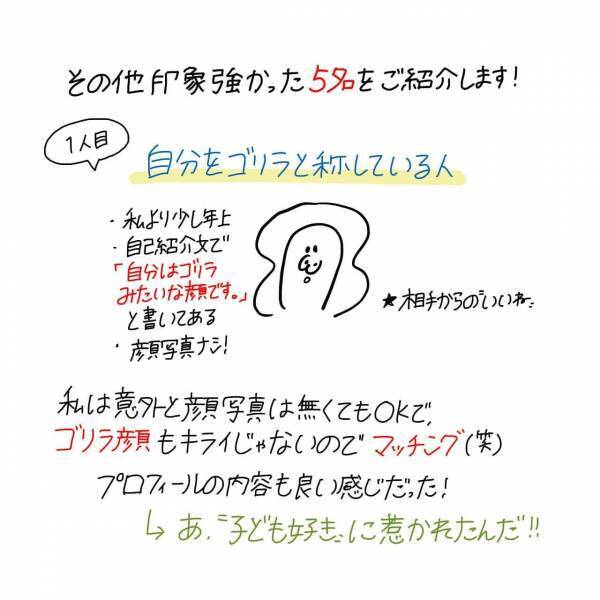 その他印象強かった5名をご紹介します!
1人目
自分をゴリラと称している人
・私より少し年上
・自己紹介文で
「自分はゴリラ
みたいな顔です。」
と書いてある
・顔写真ナシ!
★相手からの"いいね"
私は意外と顔写真は無くてもOKで、
ゴリラ顔もキライじゃないのでマッチング(笑)
プロフィールの内容も良い感じだった!
↳ あ、"子ども好き"に惹かれたんだ!!